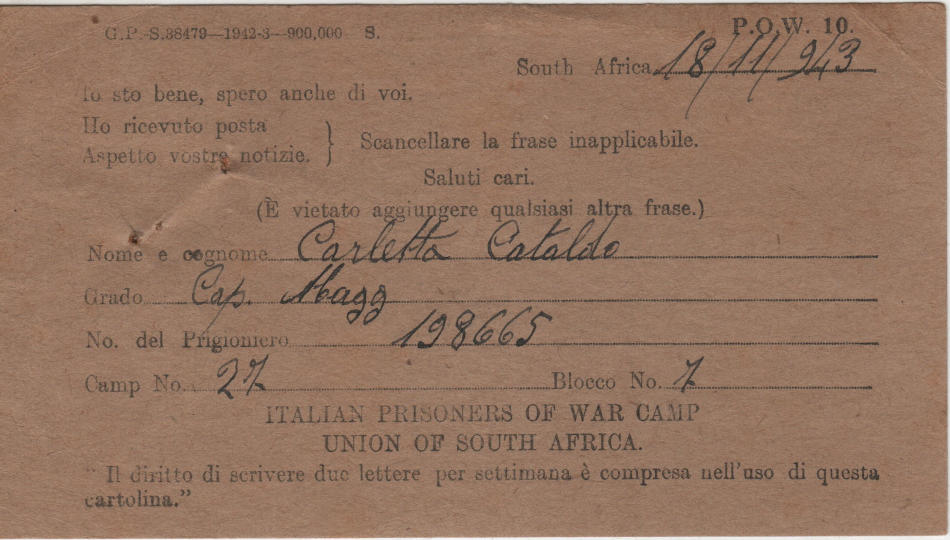 G.P.-S.38479—1942-3—900,000 S.
P.O.W. 10.
South Africa 18/11/943
Io sto bene, spero anche di voi.
Ho ricevuto posta
Aspetto vostre notizie. } Scancellare la frase inapplicabile.
Saluti cari.
(È vietato aggiungere qualsiasi altra frase.)
Nome e cognome Carletta Cataldo
Grado Cap. Magg
No. del Prigioniero 198665
Camp No. 27 Blocco No. 7
ITALIAN PRISONERS OF WAR CAMP
UNION OF SOUTH AFRICA.
" Il diritto di scrivere due lettere per settimana è compresa nell'uso di questa
cartolina."